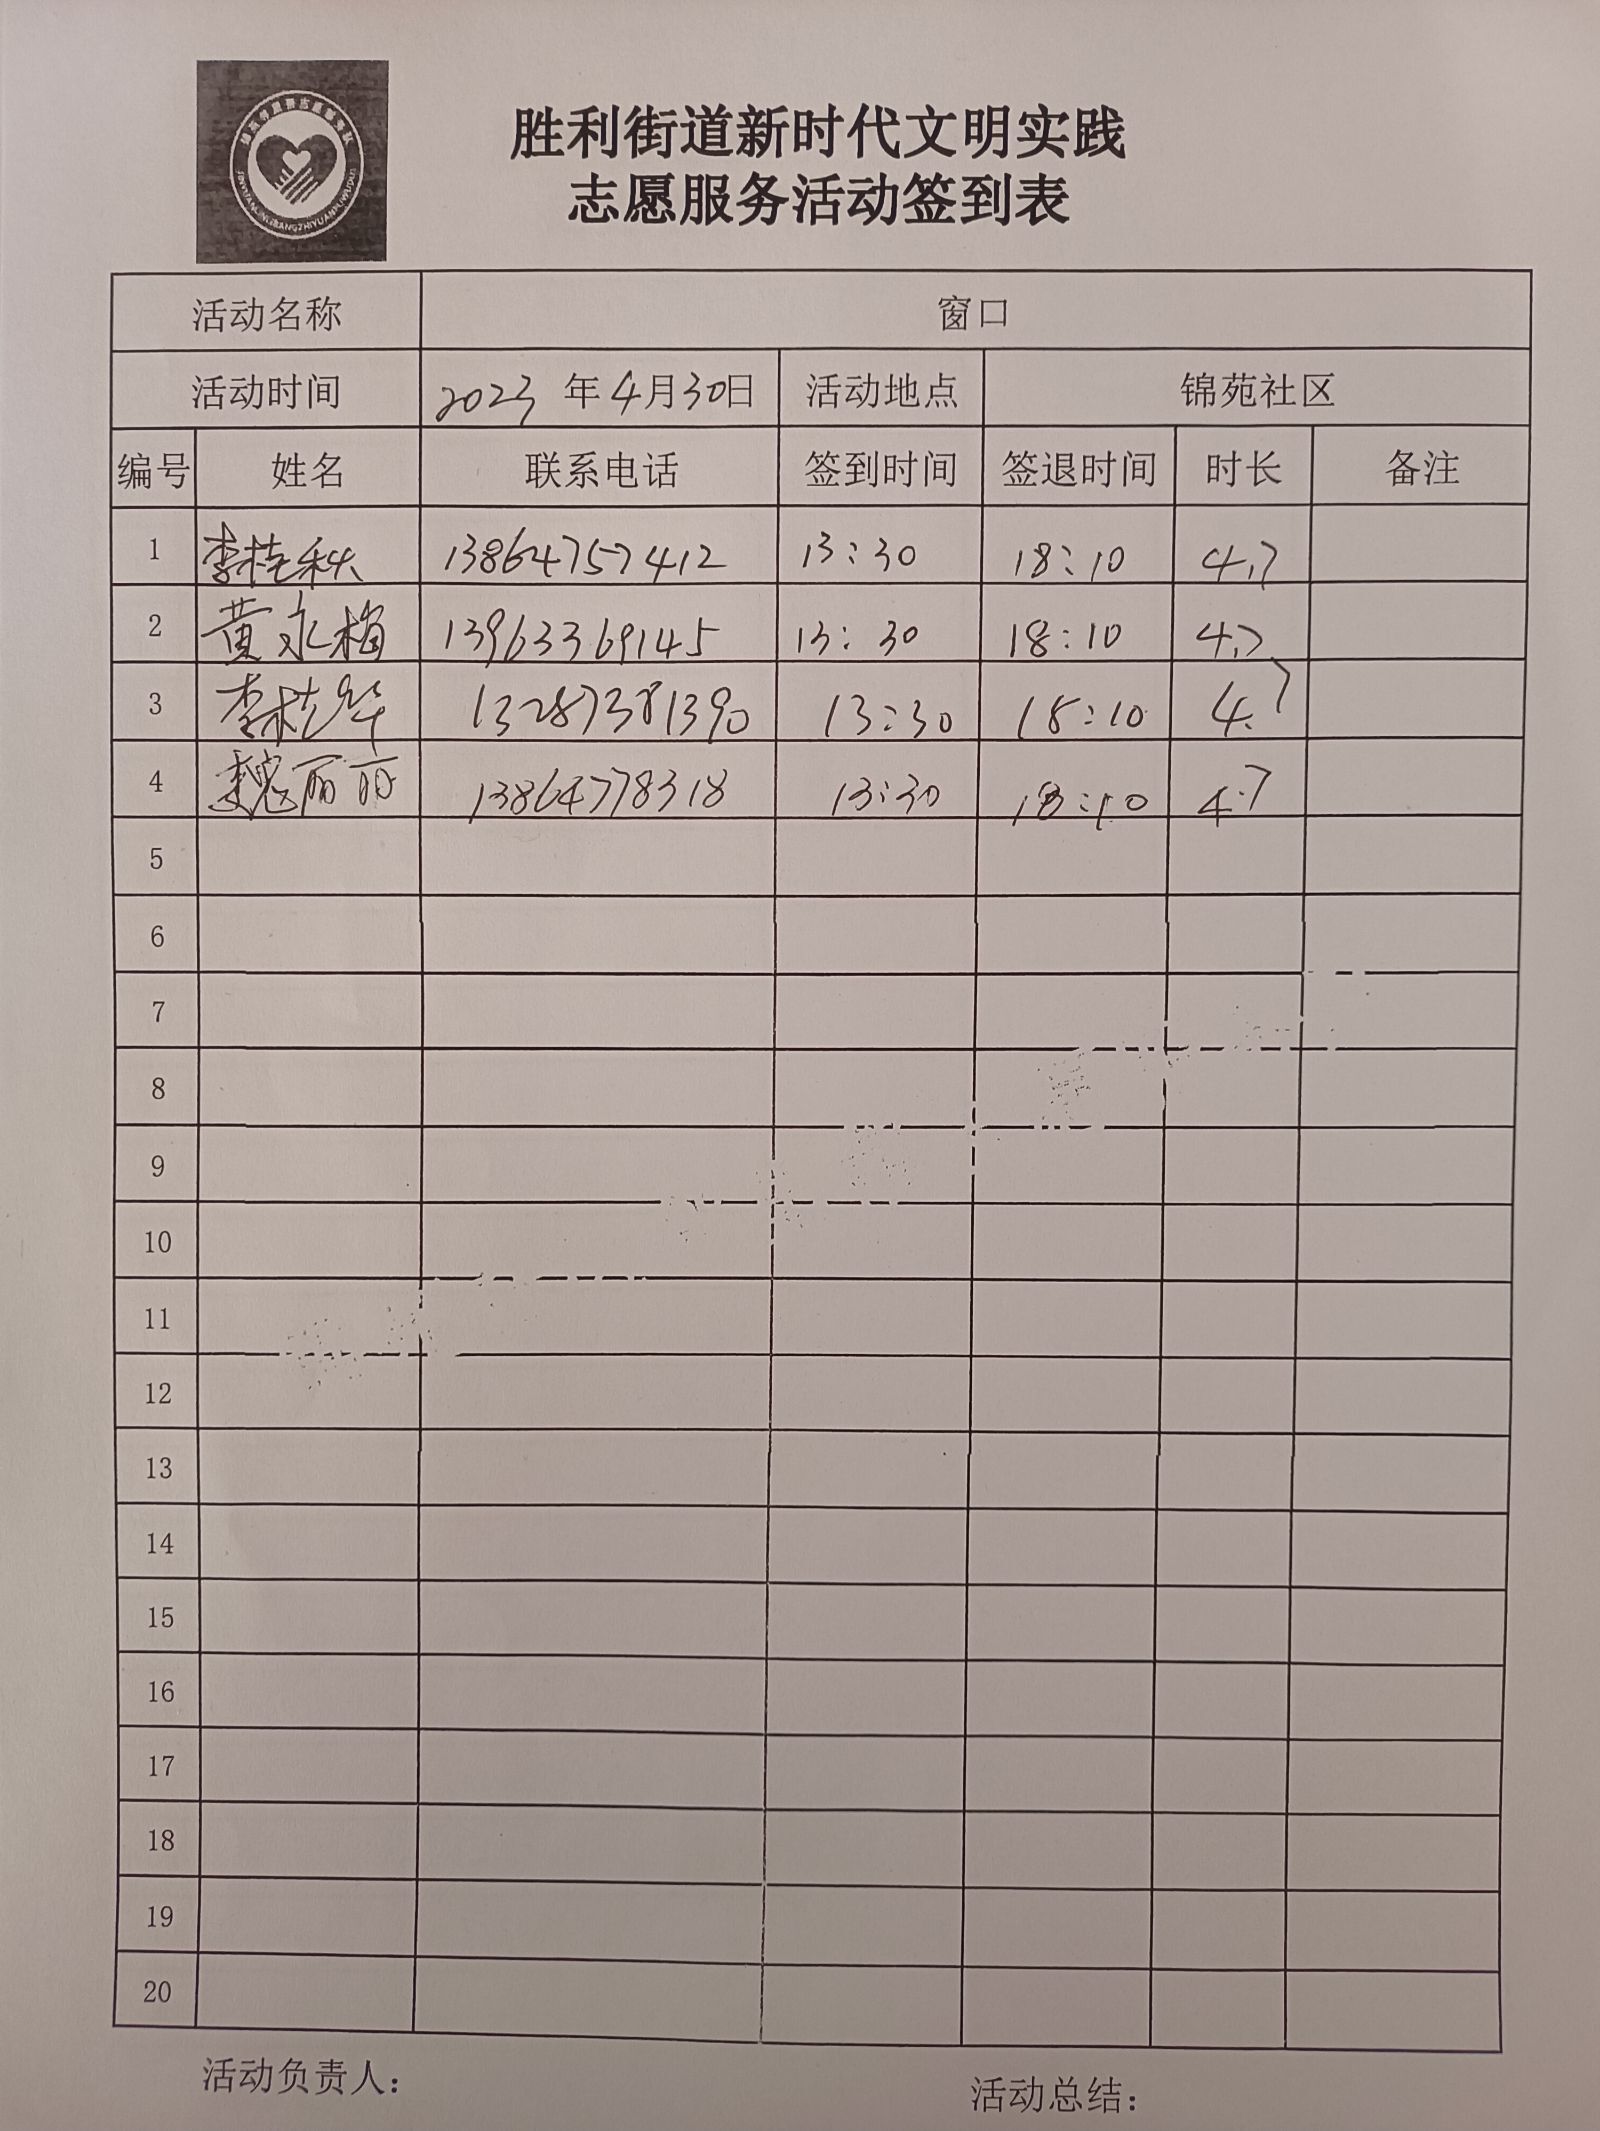 胜利街道新时代文明实践
志愿服务活动签到表
活动名称 窗口
活动时间 2023 年 4 月 30 日 活动地点 锦苑社区
编号 姓名 联系电话 签到时间 签退时间 时长 备注
1 李桂秋 13864757412 13:30 18:10 4.7
2 黄永梅 13963369145 13:30 18:10 4.7
3 李桂华 13287381390 13:30 18:10 4.7
4 魏丽丽 13864778318 13:30 18:10 4.7
5
6
7
8
9
10
11
12
13
14
15
16
17
18
19
20
活动负责人: 活动总结: